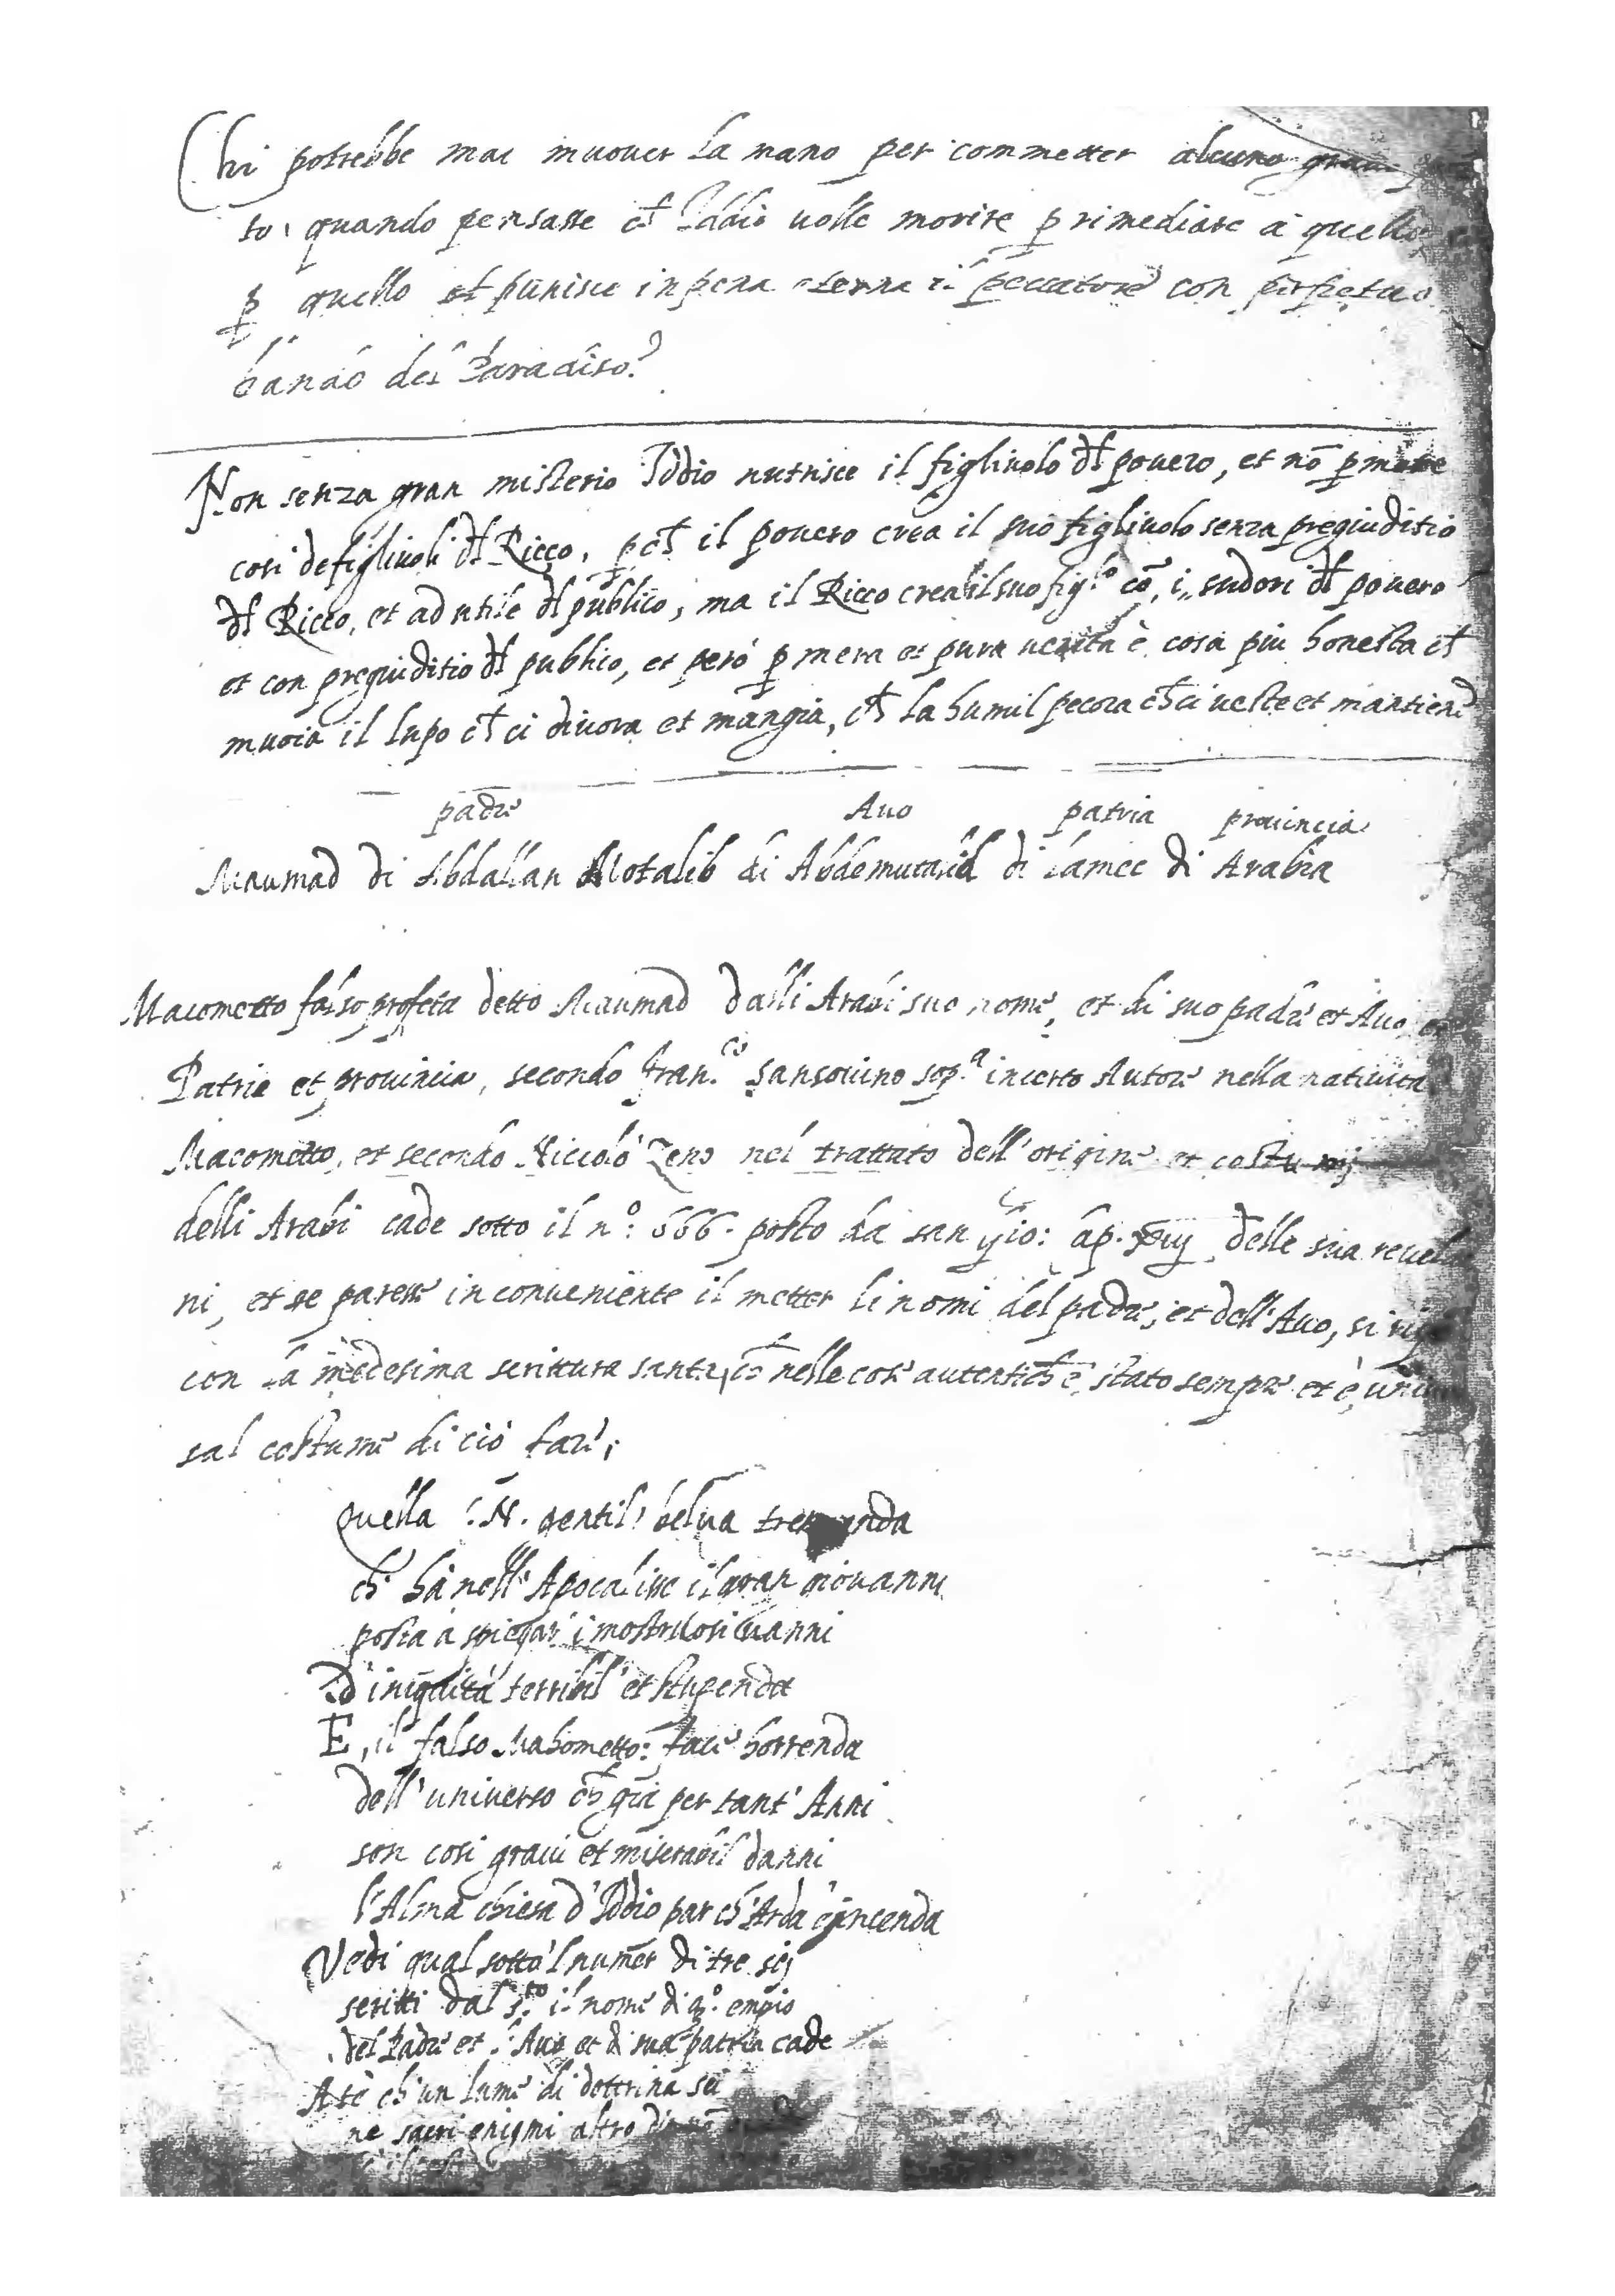 Chi potrebbe mai muover la mano per commetter alcuno gran
to, quando pensasse ch̃ Iddio uolle morire p rimediare à quello
p quello et punisce in pena eterna il peccatore con perpetuo
bando del Paradiso?
Non senza gran misterio Iddio nutrisce il figliuolo dl̃ pouero, et nõ pmette
cosi de figliuoli dl̃ Ricco, pch̃ il pouero crea il suo figliuolo senza pregiuditio
dl̃ Ricco, et ad utile dl̃ publico, ma il Ricco crea il suo fig.lo cõ i sudori dl̃ pouero
et con pregiuditio dl̃ publico, et però p mera et pura uerità è cosa piu honesta ch̃
muoia il lupo ch̃ ci diuora et mangia, ch̃ la humil pecora ch̃ ci ueste et mantiene
padre Auo patria prouincia
Maumad di Abdallan Motalib di Abdemutalid di Lamec di Arabia
Macometto falso profeta detto Maumad dalli Arabi suo nome, et di suo padre et Auo, et
Patria et prouincia, secondo Fran.co Sansouino sop.a incerto Autore nella natiuita
Macometto, et secondo Niccolò Zeno nel trattato dell'origine et costumi
delli Arabi cade sotto il n.o 666. posto da san Gio: ap. delle sua
ni, et se paresse inconueniente il metter li nomi del padre, et dell'Auo, si
con la medesima scrittura santa, ch̃ nelle cose autentich̃ è stato sempre et è uniuer
sal costume di ciò fare;
Quella S.N. gentil' belua tremenda
ch' hà nell' Apocalisse il gran Giouanni
posta à spiegar' i mostruosi uanni
D' iniquità terribil' et stupenda
E, il falso Mahometto: face horrenda
dell' uniuerso ch̃ già per tant' Anni
son cosi graui et miserabil' danni
l'Alma chiesa d' Iddio par ch' Arda e incenda
Vedi qual sotto 'l numer di tre sei
scritti dal s.to il nome di q.o empio
del Padre et l' Auo et di sua patria cade
A te ch' un lume di dottrina sei
ne sacri enigmi altro